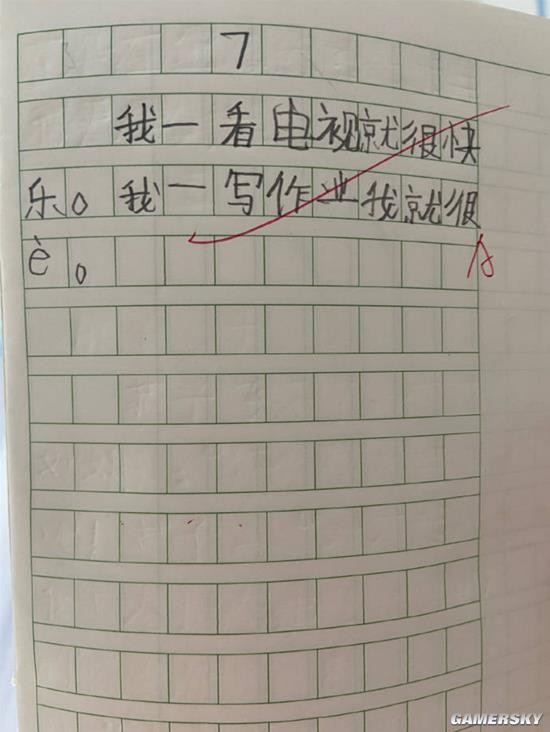 7
我一看电视就很快
乐。我一写作业我就很
è。
GAMERSKY